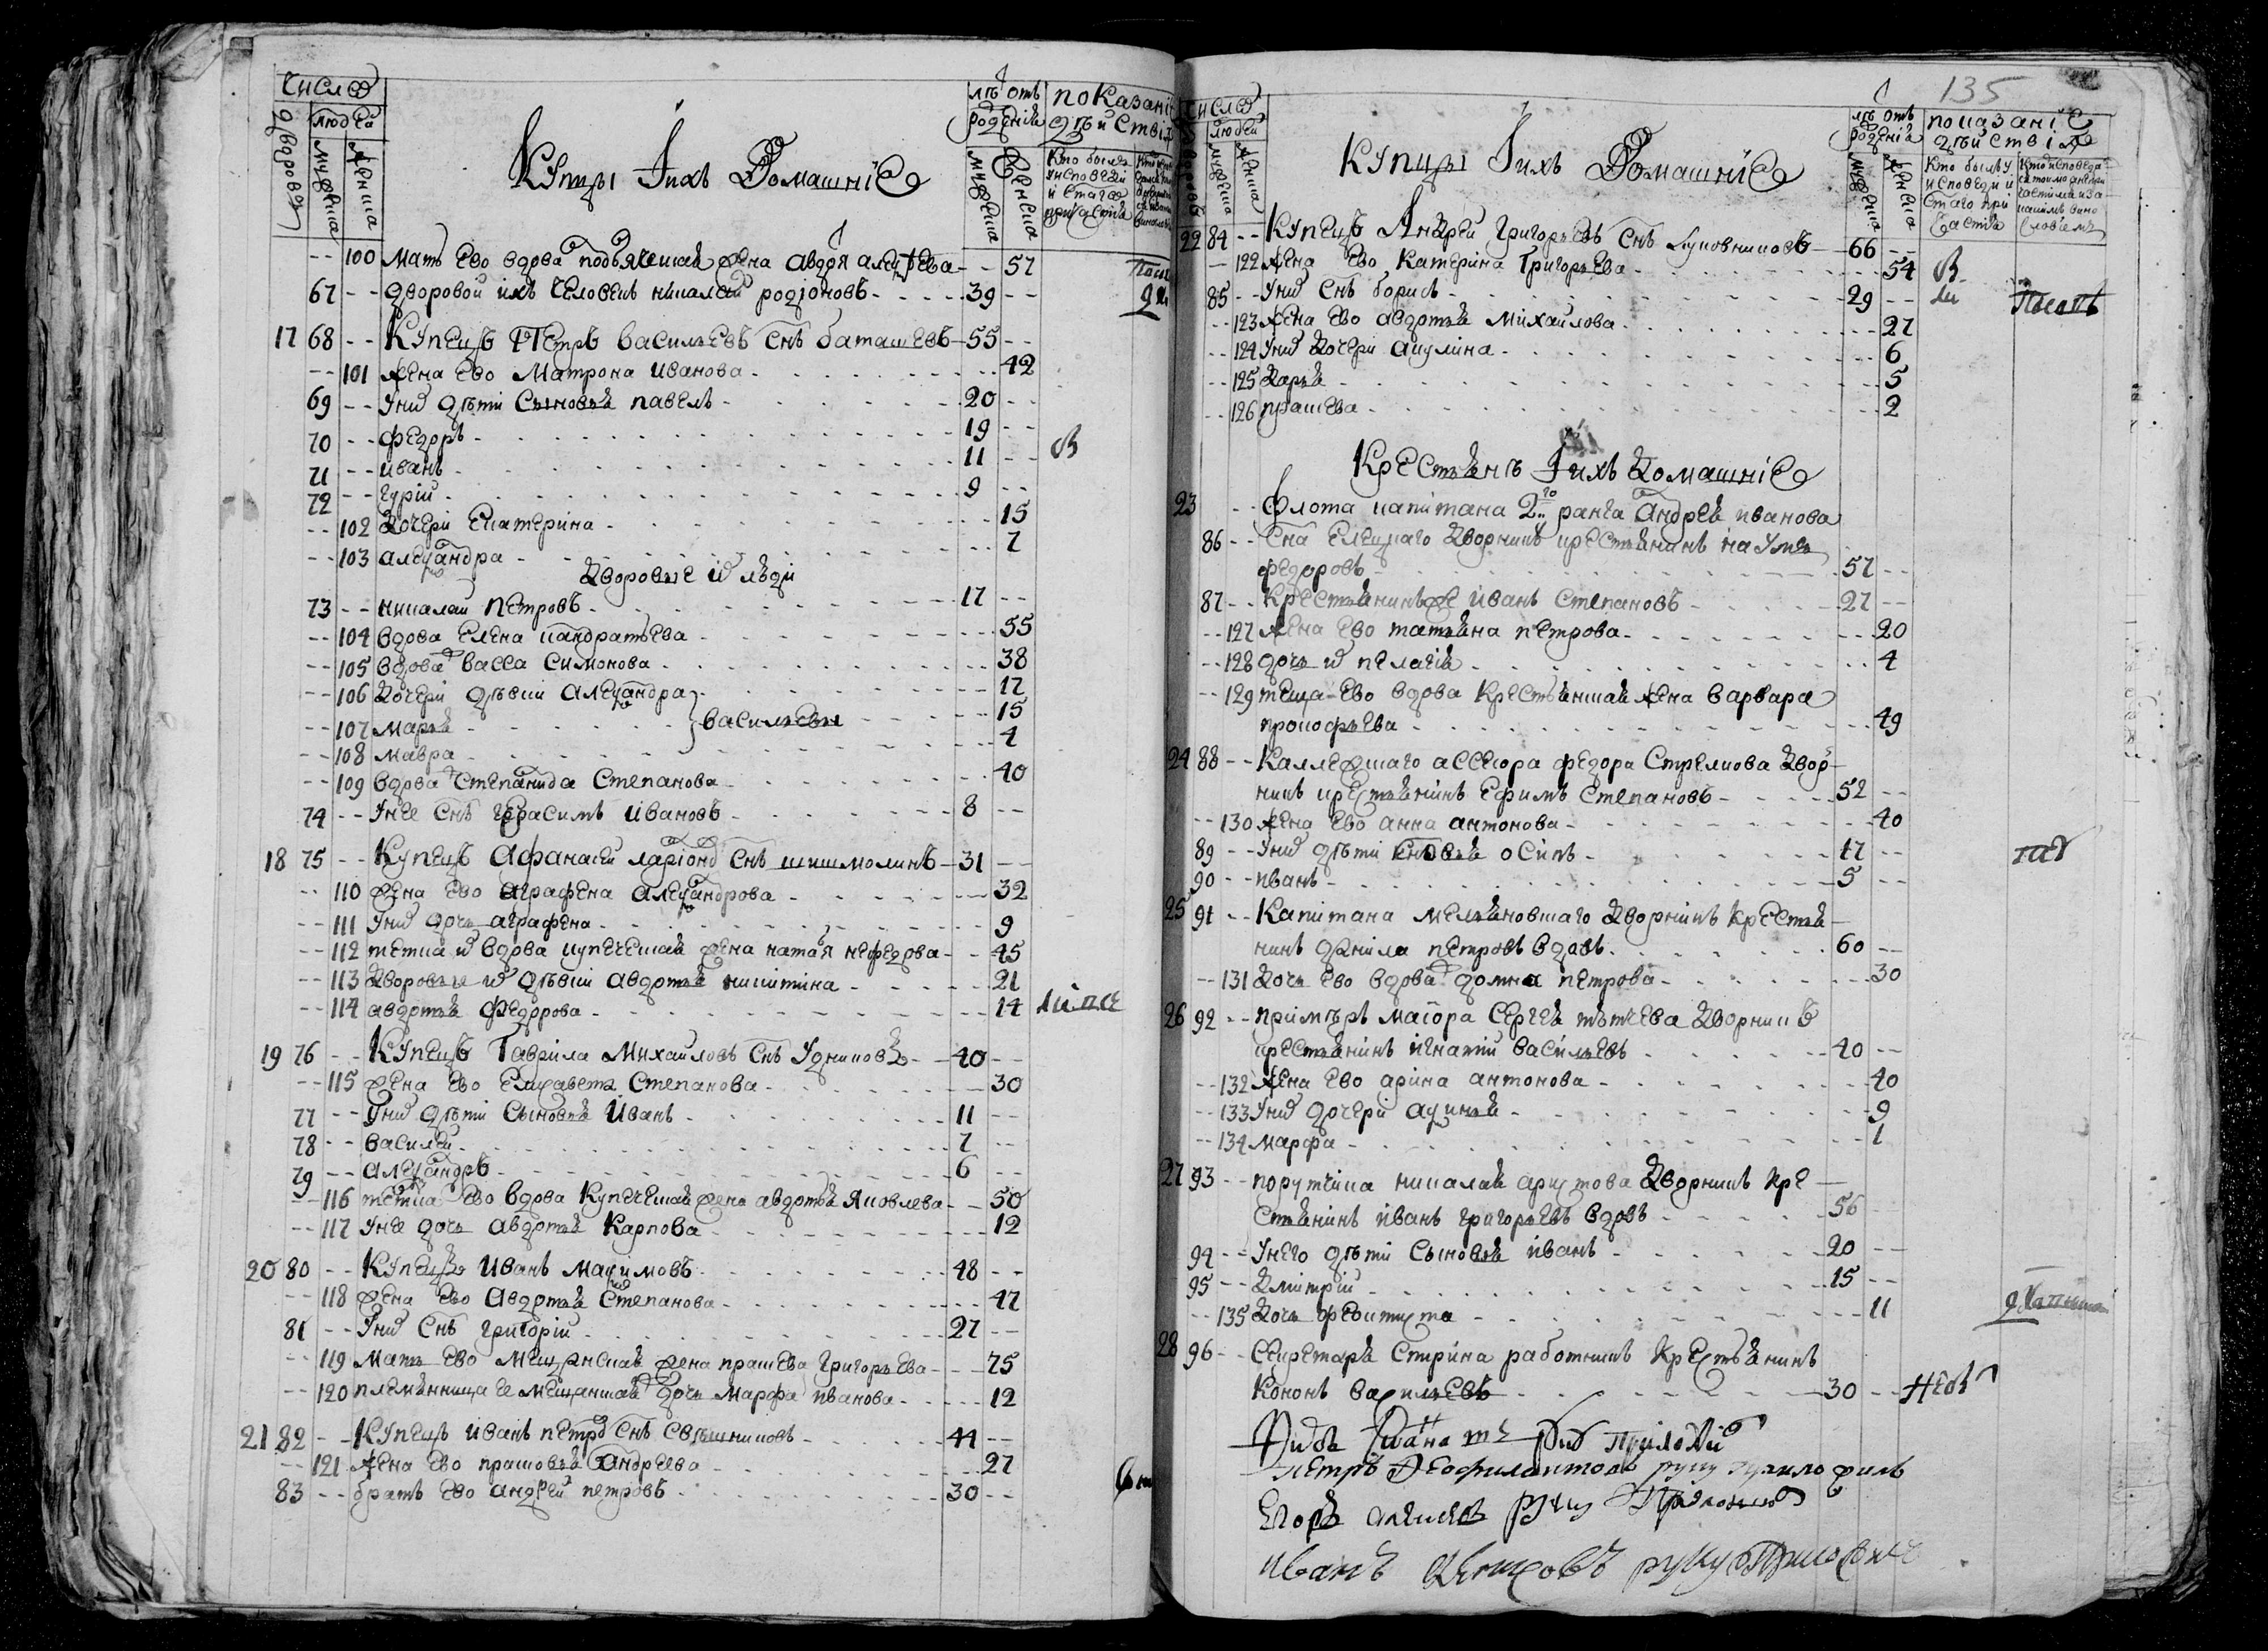 число
дворовъ
людей
мужеска
женска
Купцы и ихъ домашніе
лѣтъ отъ роденія
мужеска
женска
показаніе дѣйствія
Кто былъ у исповеди и стаго причастія
-- 100 Мать ево вдова подьяческая жена авдотя алеѯѣева - - 57
67 -- дворовой ихъ человекъ николай родіоновъ - 39 --
17 68 -- Купецъ Петръ васильевъ снъ баташевъ - 55 --
-- 101 жена ево Матрона иванова - 42
69 -- У нихъ дѣти Сыновья павелъ - 20 --
70 -- федоръ - 19 --
71 -- иванъ - 11 --
72 -- гурій - 9 --
-- 102 дочери екатерина - 15
-- 103 алеѯандра - 7
дворовые их люди
73 -- николай петровъ - 17 --
-- 104 вдова елена кандратьева - 55
-- 105 вдова васса симонова - 38
-- 106 дочери дѣвки алеѯандра - 17
-- 107 марья } васильевы - 15
-- 108 мавра - 4
-- 109 вдова степанида степанова - 40
74 -- У нее снъ герасимъ ивановъ - 8 --
18 75 -- Купецъ Афанасей ларіоно снъ шишмолинъ - 31 --
-- 110 жена ево аграфена алеѯандрова - 32
-- 111 У них дочь аграфена - 9
-- 112 тетка их вдова купеческая жена натая нефедова - 45
-- 113 дворовые их дѣвки авдотья никитина - 21
-- 114 авдотья федорова - 14
19 76 -- Купецъ Гаврила Михайловъ снъ Удниковъ - 40 --
-- 115 жена ево Елисаветъ Степанова - 30
77 -- У них дѣти Сыновья Иванъ - 11 --
78 -- василей - 7 --
79 -- алеѯандръ - 6 --
-- 116 тетка ево вдова купеческая жена авдотья яковлева - 50
-- 117 У нее дочь авдотья Карпова - 12
20 80 -- Купецъ Иванъ Маѯимовъ - 48 --
-- 118 жена ево Авдотья Степанова - 47
81 -- У них снъ григорій - 27 --
-- 119 Мать ево Мещанская жена прасковья григорьева - 75
-- 120 племянница ее мещанская дочь марфа иванова - 12
21 82 -- Купецъ иванъ петро снъ Свѣшниковъ - 44 --
-- 121 жена ево прасковья андреева - 27
83 -- братъ ево андрей петровъ - 30 --
135
число
дворовъ
людей
мужеска
женска
Купцы и ихъ домашніе
лѣтъ отъ роденія
мужеска
женска
показаніе дѣйствія
Кто былъ у исповеди и стаго причастія
22 84 -- Купецъ Андрей григорьевъ снъ Луковниковъ - 66 --
-- 122 жена ево Катерина григорьева - 54
85 -- У них снъ борисъ - 29 --
-- 123 жена ево авдотья Михайлова - 27
-- 124 У них дочери акулина - 6
-- 125 дарья - 5
-- 126 прасковья - 2
Крестьянъ и ихъ домашніе
23 -- флота капитана 2го ранга андрея иванова
86 -- сна елецкаго дворникъ крестьянинъ наумъ
федоровъ - 57 --
87 -- Крестьянинъ же иванъ степановъ - 27 --
-- 127 жена ево татьяна петрова - 20
-- 128 дочь их пелагія - 4
-- 129 теща ево вдова крестьянская жена варвара
прокофьева - 49
24 88 -- Каллежскаго ассесора федора Стрелкова двор-
никъ крестьянинъ ефимъ степановъ - 52 --
-- 130 жена ево анна антонова - 40
89 -- У них дѣти сновья осипъ - 17 --
90 -- иванъ - 5 --
25 91 -- Капитана мельяновскаго дворникъ крестья-
нинъ данила петровъ вдовъ - 60 --
-- 131 дочь ево вдова домна петрова - 30
26 92 -- примьеръ маіора Сергея тютчева дворникъ
крестьянинъ игнатій васильевъ - 40 --
-- 132 жена ево арина антонова - 40
-- 133 У них дочери аѯинья - 9
-- 134 марфа - 1
27 93 -- порутчика николая аристова дворникъ кре-
стьянинъ иванъ григорьевъ вдовъ - 56 --
94 -- У него дѣти Сыновья иванъ - 20 --
95 -- дмитрій - 15 --
-- 135 дочь феоктиста - 11
28 96 -- Секретаря Стрина работникъ крестьянинъ
кононъ васильевъ - 30 --
Петръ Феофилактовъ руку приложилъ
Егоръ алексеевъ руку приложилъ
Иванъ руку приложилъ